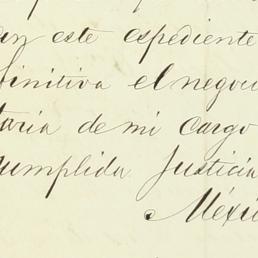 en este expediente
finitiva el negoci
taria de mi cargo
cumplida Justicia
Méxi